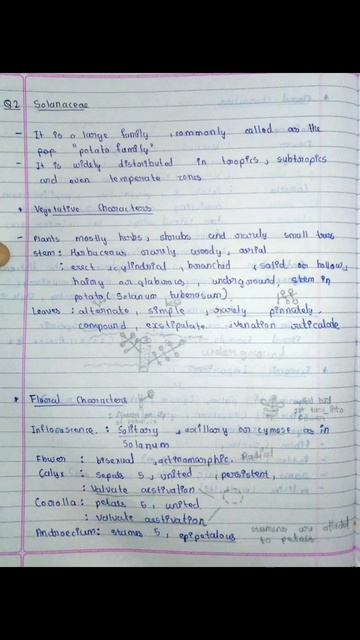 Q2 Solanaceae
- It is a large family, commonly called as the
pop "potato family"
- It is widely distributed in tropics, subtropics
and even temperate zones
* Vegetative Characters
- Plants mostly herbs, shrubs and rarely small trees
Stem: Herbaceous rarely woody, arial
: erect, cylindrial, branchid, solid or hollow,
hairy or glabarous, undrground, stem in
potato (Selanum tuberosum).
Leaves: alternate, simple, rarely pinnately
compound, exstipulate, venation reticulate
* Floral Characters
Inflorescence.: Solitary, axillary or cymose, as in
Solanum
Flower: bisexual, actinomorphic. Radial
Calyx: sepals 5, united, persistent,
: Valvate aestivation
Corolla: petals 5, united
: valvate aestivation
Androecium: stames 5, epipetalous
stamens are attached
to petals